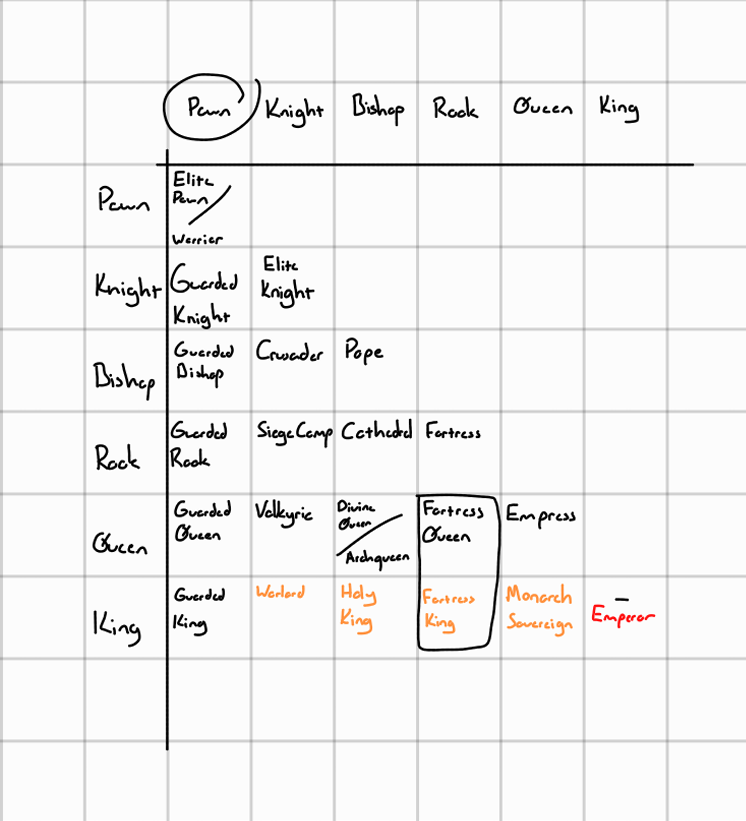 Pawn Knight Bishop Rook Queen King
Pawn Elite Pawn / Warrior
Knight Guarded Knight Elite Knight
Bishop Guarded Bishop Crusader Pope
Rook Guarded Rook Siege Camp Cathedral Fortress
Queen Guarded Queen Valkyrie Divine Queen / Archqueen Fortress Queen Empress
King Guarded King Warlord Holy King Fortress King Monarch Sovereign – Emperor